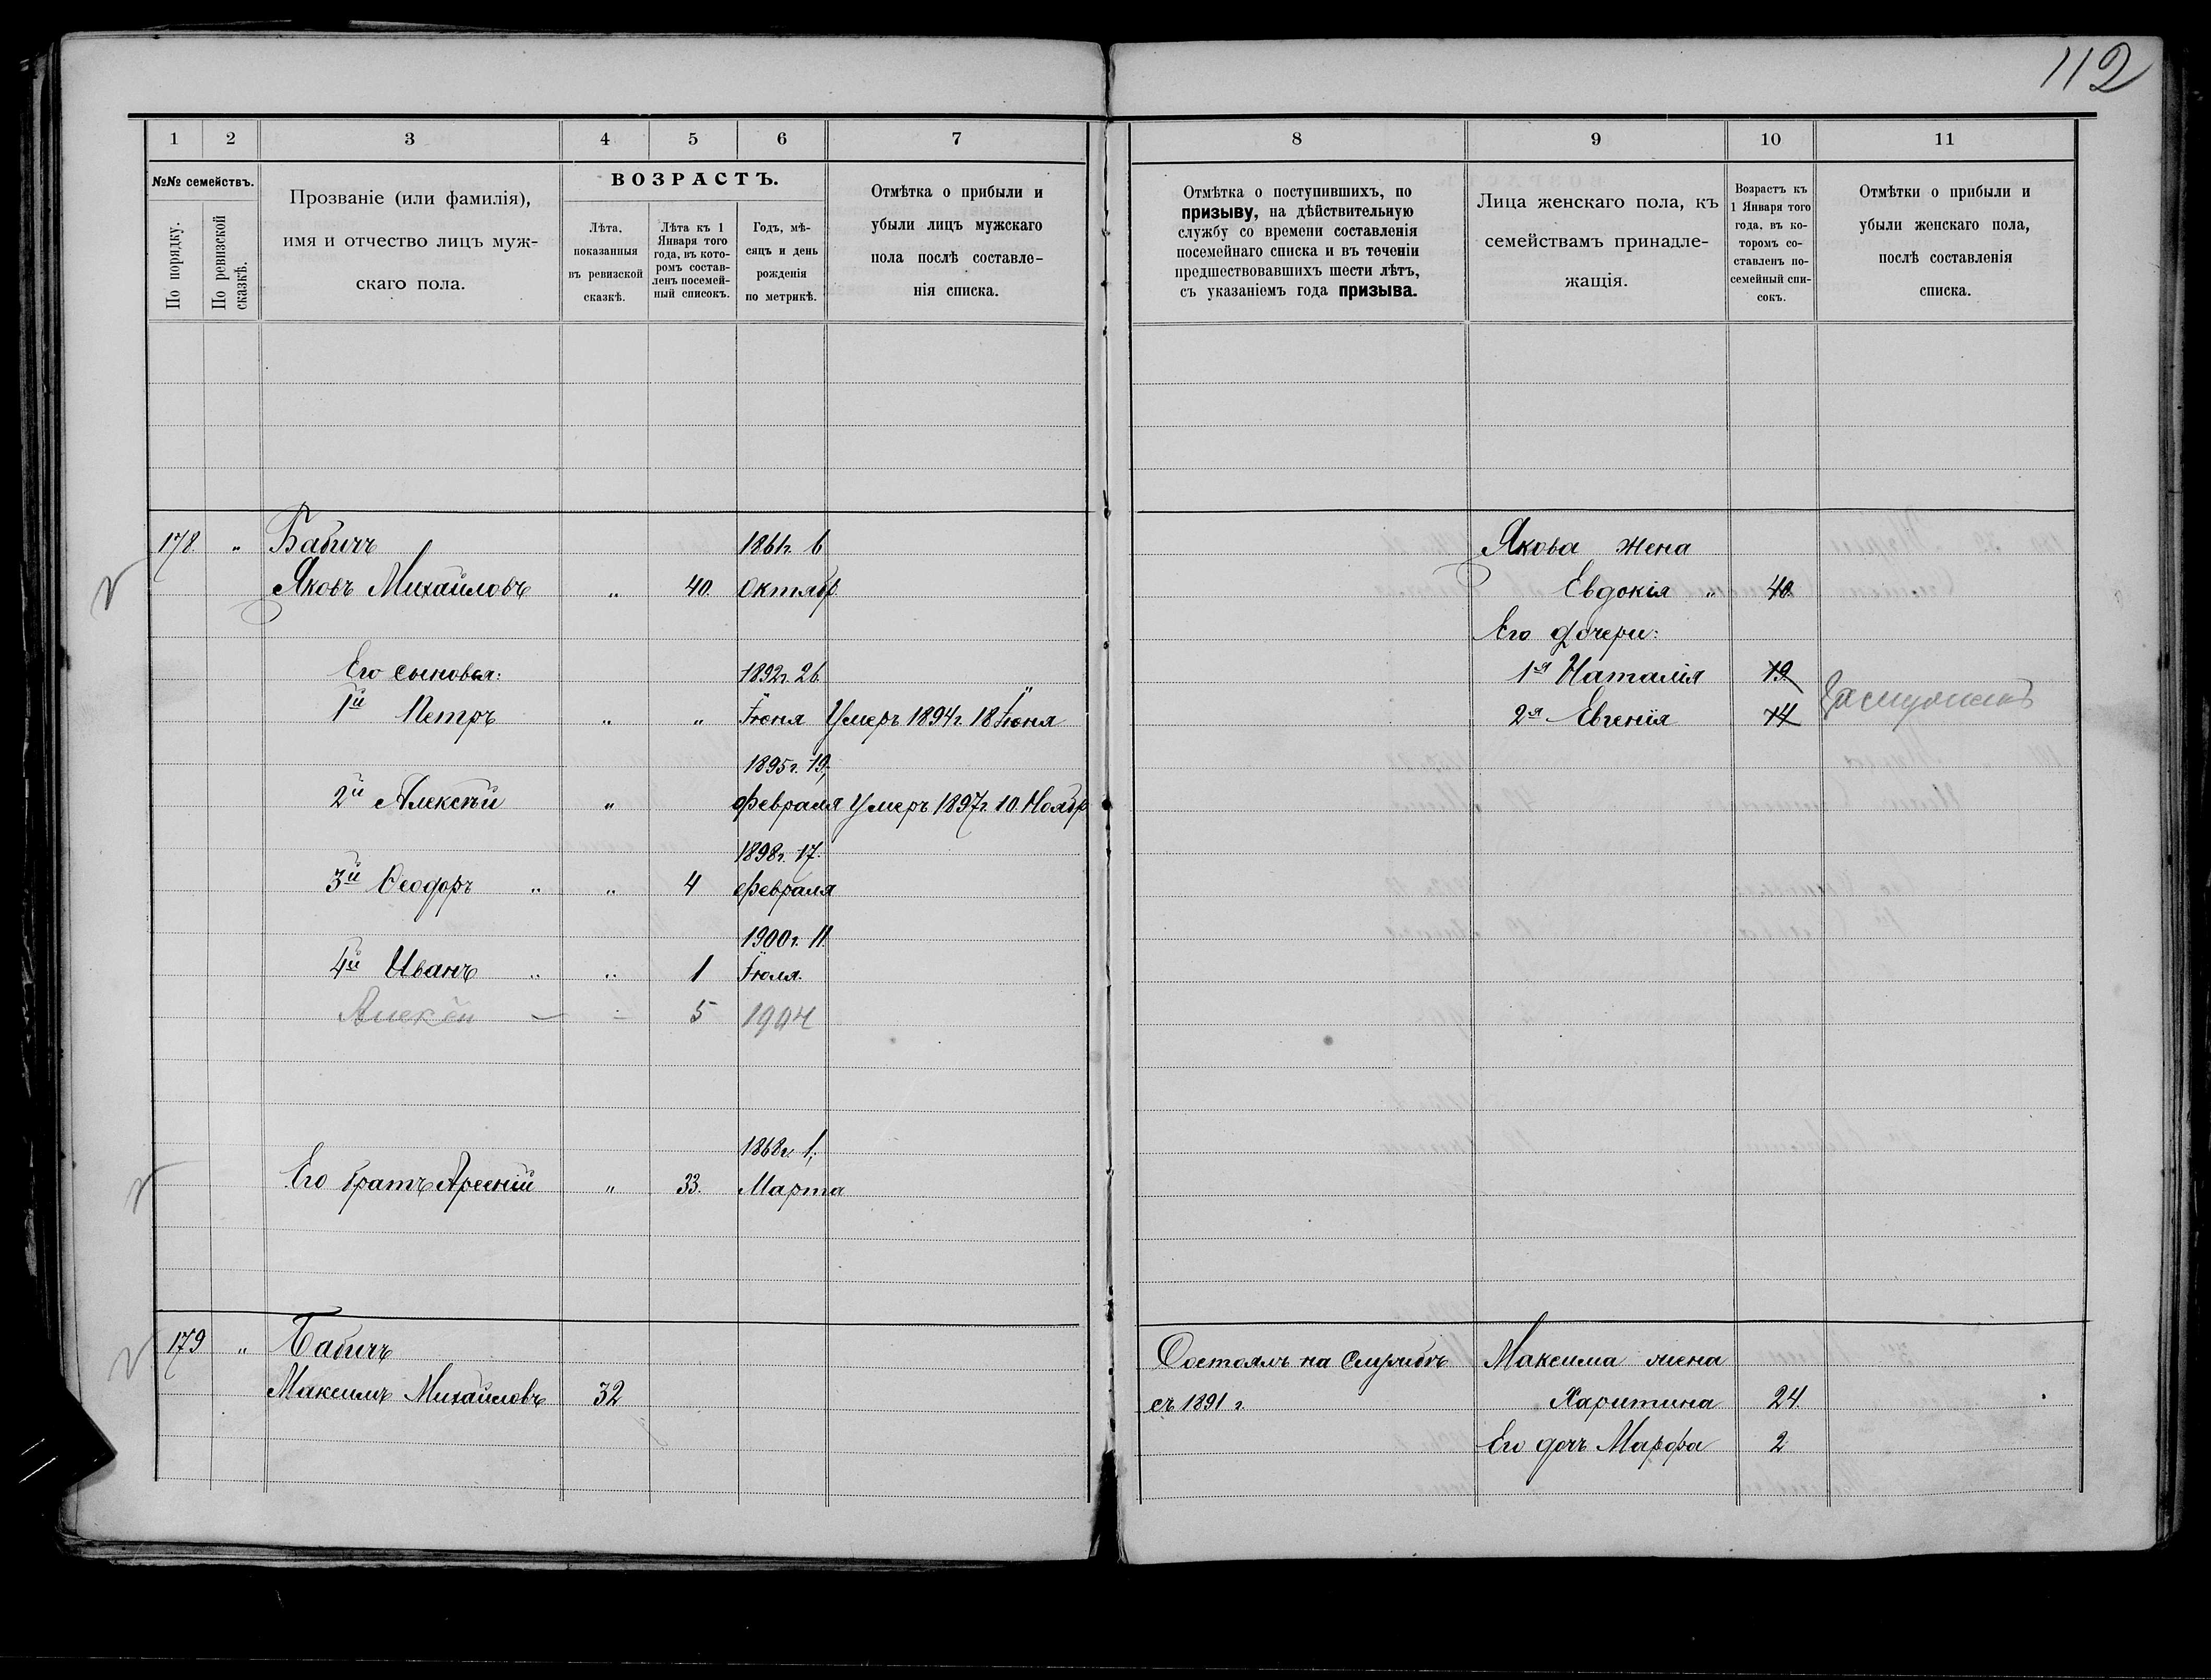 112
1 2 3 4 5 6 7
№№ семействъ.
По порядку.
По ревизской сказкѣ.
Прозваніе (или фамилія),
имя и отчество лицъ муж-
скаго пола.
ВОЗРАСТЪ.
Лѣта,
показанныя
въ ревизской
сказкѣ.
Лѣта къ 1
Января того
года, въ кото-
ромъ состав-
ленъ посемей-
ный списокъ.
Годъ, мѣ-
сяцъ и день
рожденія
по метрикѣ.
Отмѣтка о прибыли и
убыли лицъ мужскаго
пола послѣ составле-
нія списка.
178. " Бабичъ 1861г. 6
Яковъ Михайловъ " 40. Октябр.
Его сыновья: 1892г. 26
1й Петръ " " Іюня Умеръ 1894г. 18 Іюня
1895г. 19,
2й Алексѣй " февраля Умеръ 1897г. 10. Ноябр
1898г. 17.
3й Ѳеодоръ " " 4 февраля
1900г. 11.
4й Иванъ " " 1 Іюля.
Алексѣй 5 1904
1868г. 1,
Его братъ Арсеній " 33. Марта
179 " Бабичъ
Максимъ Михайловъ 32
8 9 10 11
Отмѣтка о поступившихъ, по
призыву, на дѣйствительную
службу со времени составленія
посемейнаго списка и въ теченіи
предшествовавшихъ шести лѣтъ,
съ указаніемъ года призыва.
Лица женскаго пола, къ
семействамъ принадле-
жащія.
Возрастъ къ
1 Января того
года, въ ко-
торомъ со-
ставленъ по-
семейный спи-
сокъ.
Отмѣтки о прибыли и
убыли женскаго пола,
послѣ составленія
списка.
Якова жена
Евдокія " 40.
Его дочери:
1я Наталія 19.
2я Евгенія 14
Состоялъ на Службѣ Максима жена
съ 1891 г. Харитина 24.
Его дочь Марфа 2